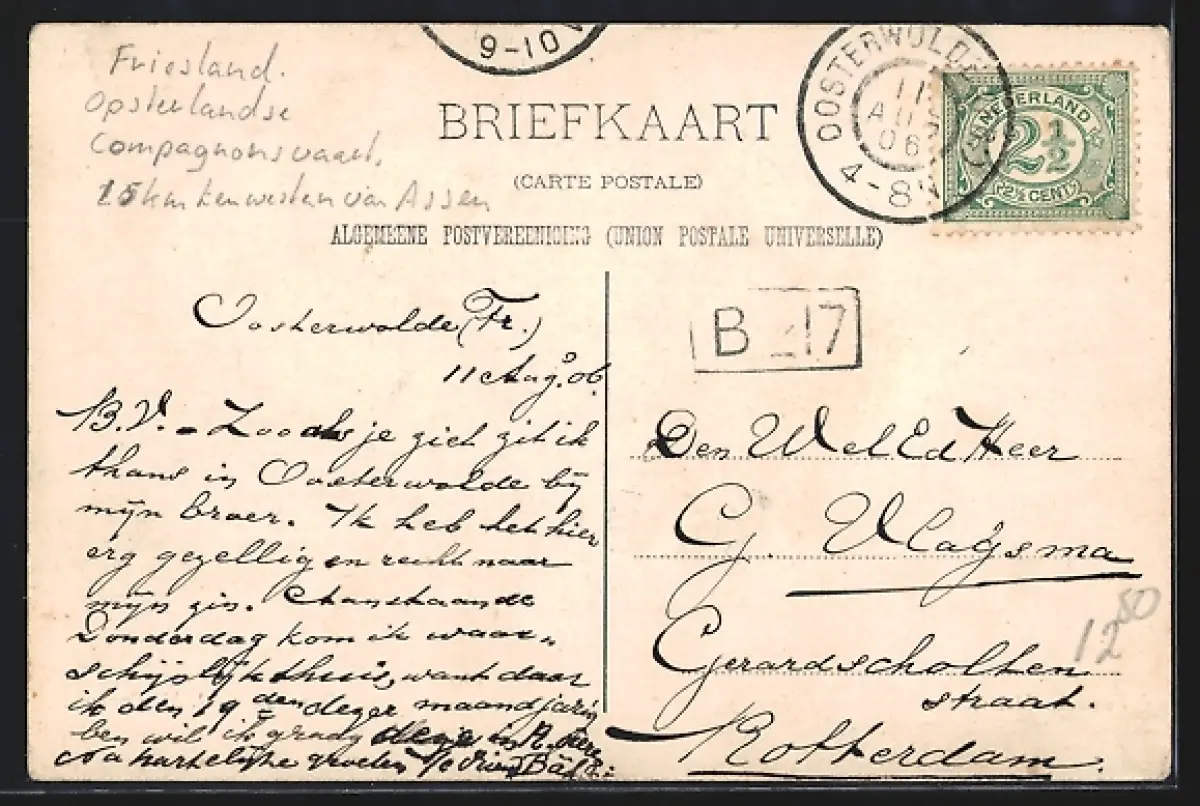 9-10 V
Friesland.
Opsterlandse
Compagnonsvaart.
15 km ten westen van Assen
BRIEFKAART
(CARTE POSTALE)
ALGEMEENE POSTVEREENIGING (UNION POSTALE UNIVERSELLE)
OOSTERWOLDE
11
AUG
06
4-8V
NEDERLAND
2½
2½ CENT
Oosterwolde (Fr.)
11 Aug. 06.
B.V. - Zooals je ziet zit ik
thans in Oosterwolde bij
mijn broer. Ik heb het hier
erg gezellig en recht naar
mijn zin. Aanstaande
Donderdag kom ik waar-
schijnlijk thuis, want daar
ik den 19 den dezer maand jarig
ben wil ik graag in R.
Na hartelijke groeten
B 17
Den WelEd Heer
G. Vlagsma
Gerardscholten
straat.
Rotterdam.
12 80